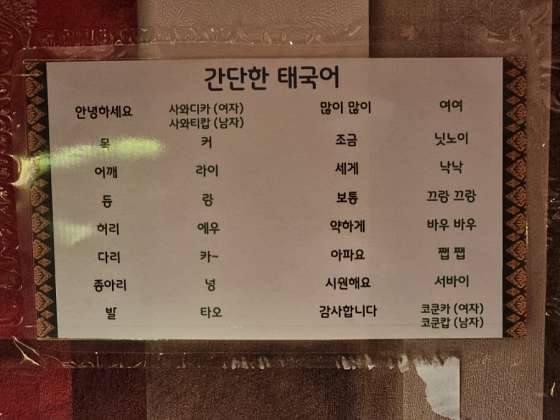 간단한 태국어
안녕하세요 사와디카 (여자) 많이 많이 여여
사와티캅 (남자)
목 커 조금 닛노이
어깨 라이 세게 낙낙
등 랑 보통 끄랑 끄랑
허리 에우 약하게 바우 바우
다리 카~ 아파요 쨉 쨉
종아리 넝 시원해요 서바이
발 타오 감사합니다 코쿤카 (여자)
코쿤캅 (남자)